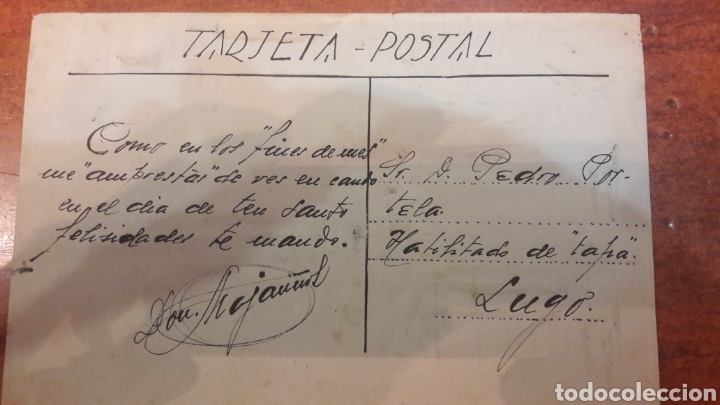 TARJETA - POSTAL
Como en los "fines de mes"
me "amprestas" de ves en cando
en el dia de ten Santo
felisidades te mando.
Don.
Sr. D. Pedro Por-
tela.
Habilitado de "tapa".
Lugo.
todocoleccion
todocoleccion.net